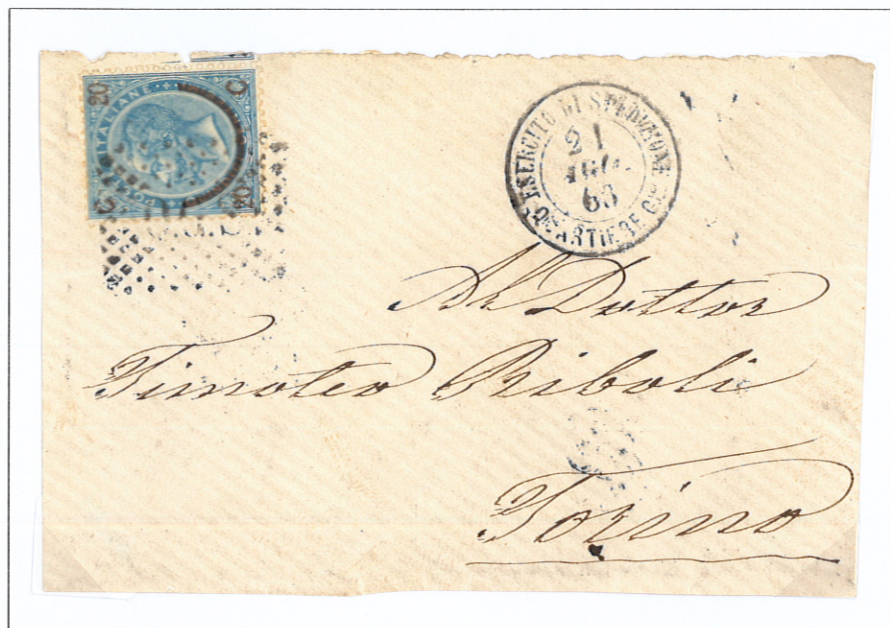 20 C
ITALIANE
ESERCITO DI SPEDIZIONE
21
AGO.
63
QUARTIERE G
Al Dottor
Timoteo Riboli
Torino